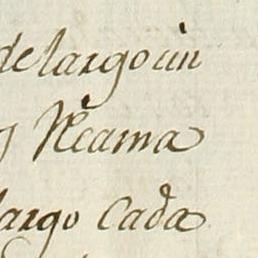 de largo un
Ytt Cama
largo Cada